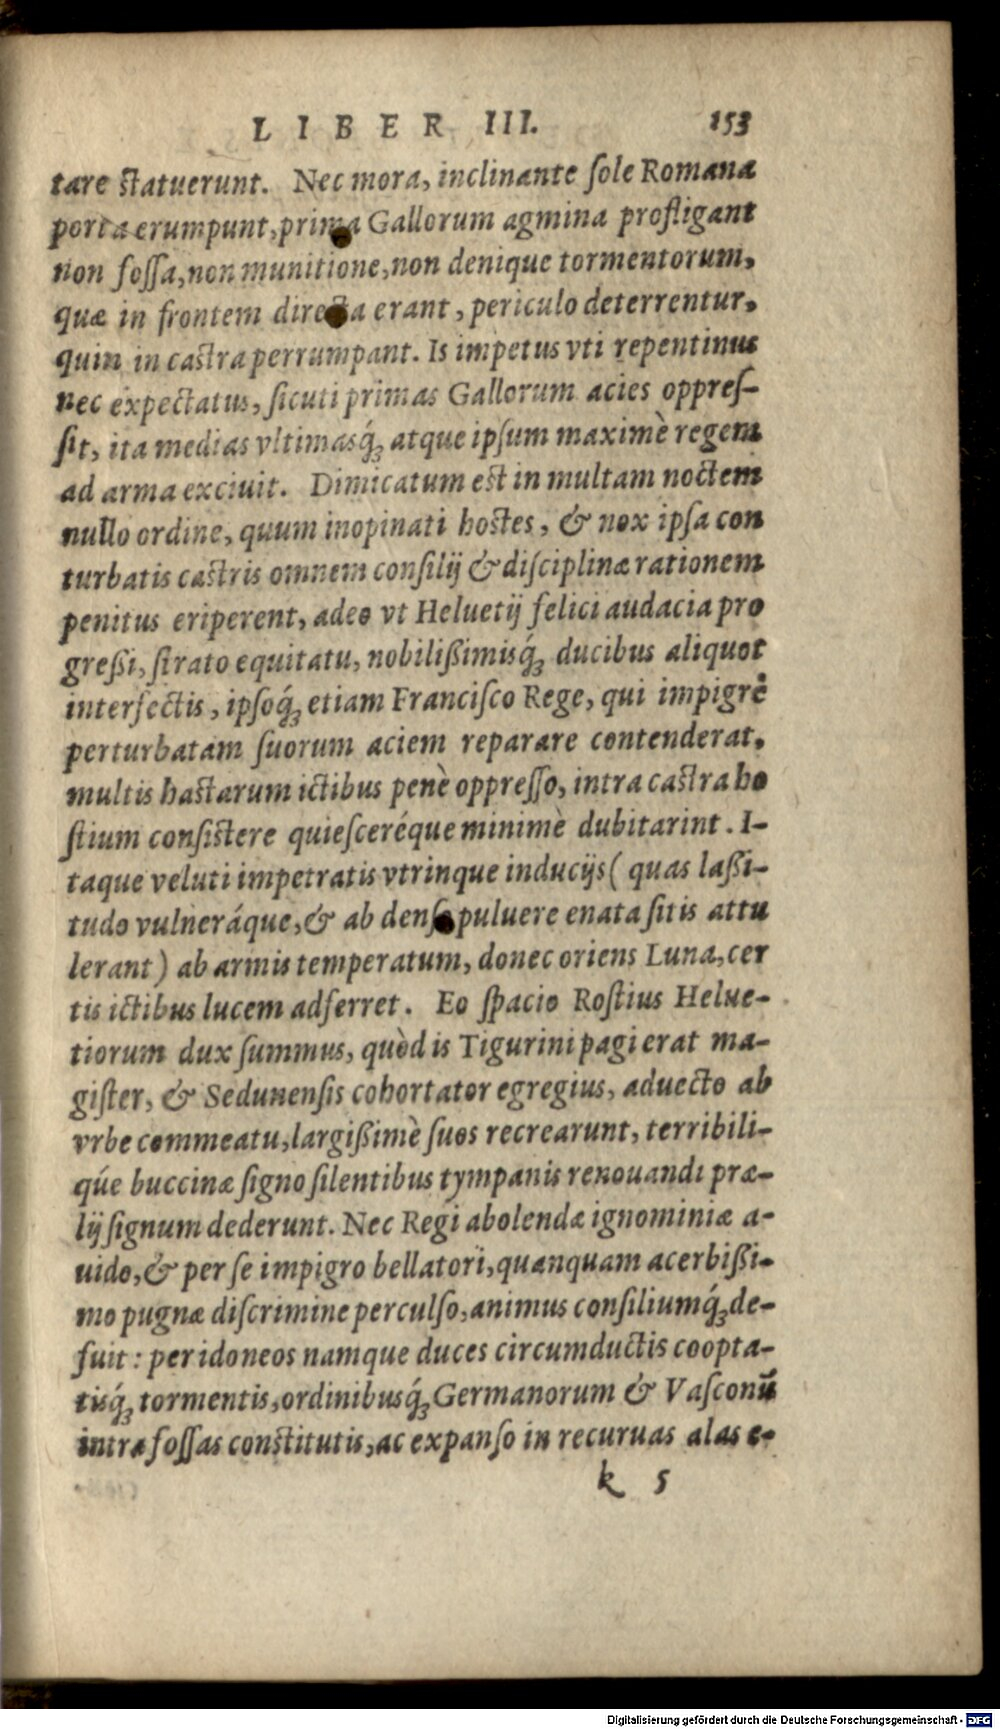 LIBER III. 153
tare ſtatuerunt. Nec mora, inclinante ſole Romana
porta erumpunt, prima Gallorum agmina profligant
non foſſa, non munitione, non denique tormentorum,
quæ in frontem directa erant, periculo deterrentur,
quin in caſtra perrumpant. Is impetus vti repentinus
nec expectatus, ſicuti primas Gallorum acies oppreſ-
ſit, ita medias vltimasq́; atque ipſum maximè regem
ad arma exciuit. Dimicatum eſt in multam noctem
nullo ordine, quum inopinati hoſtes, & nox ipſa con
turbatis caſtris omnem conſilij & diſciplinæ rationem
penitus eriperent, adeo vt Heluetij felici audacia pro
greßi, ſtrato equitatu, nobilißimisq́; ducibus aliquot
interfectis, ipſoq́; etiam Franciſco Rege, qui impigrè
perturbatam ſuorum aciem reparare contenderat,
multis haſtarum ictibus penè oppreſſo, intra caſtra ho
ſtium conſiſtere quieſceréque minimè dubitarint. I-
taque veluti impetratis vtrinque inducijs ( quas laßi-
tudo vulneráque, & ab denſo puluere enata ſitis attu
lerant) ab armis temperatum, donec oriens Luna, cer
tis ictibus lucem adferret. Eo ſpacio Roſtius Helue-
tiorum dux ſummus, quòd is Tigurini pagi erat ma-
giſter, & Sedunenſis cohortator egregius, aduecto ab
vrbe commeatu, largißimè ſuos recrearunt, terribili-
qúe buccinæ ſigno ſilentibus tympanis renouandi præ-
lij ſignum dederunt. Nec Regi abolendæ ignominiæ a-
uido, & per ſe impigro bellatori, quanquam acerbißi-
mo pugnæ diſcrimine perculſo, animus conſiliumq́; de-
fuit : per idoneos namque duces circumductis coopta-
tisq́; tormentis, ordinibusq́; Germanorum & Vaſconū
intra foſſas conſtitutis, ac expanſo in recuruas alas e-
k 5
Digitalisierung gefördert durch die Deutsche Forschungsgemeinschaft - DFG